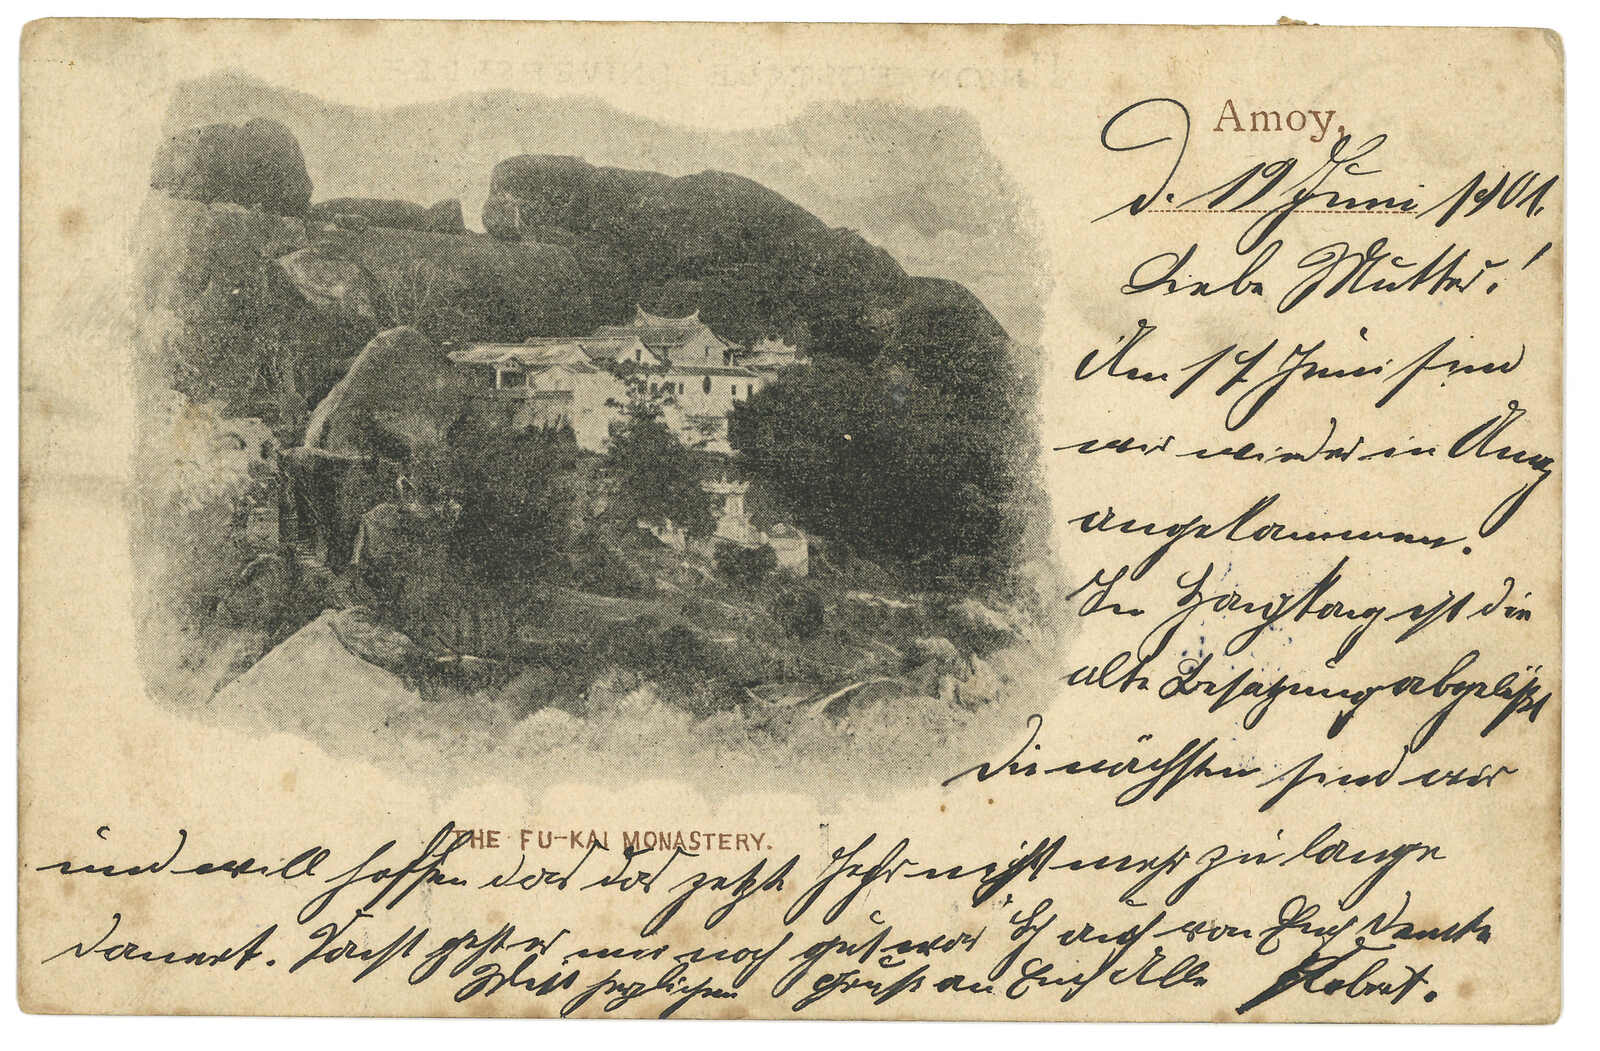 Amoy,
d. 19 Juni 1901.
Liebe Mutter!
Am 17. Juni sind
wir wieder in Amoy
angekommen.
In Hongkong ist die
alte Besatzung abgelößt
die nächsten sind wir
THE FU-KAI MONASTERY.
und will hoffen das das letzte Jahr nicht mehr zu lange
dauert. Sonst geht es mir noch gut was Ich auch von Euch denke
Mit herzlichem Gruß an Euch Alle Robert.